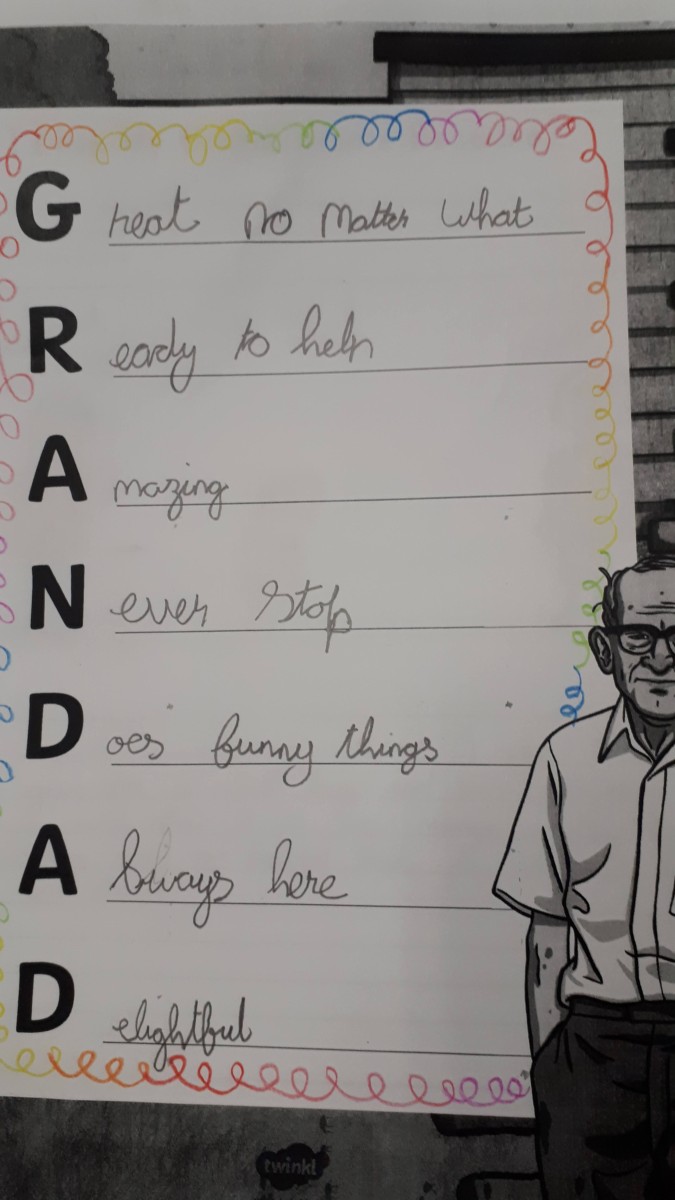 Great no matter what
Ready to help
Amazing
Never stop
Does funny things
Always here
Delightful
twinkl